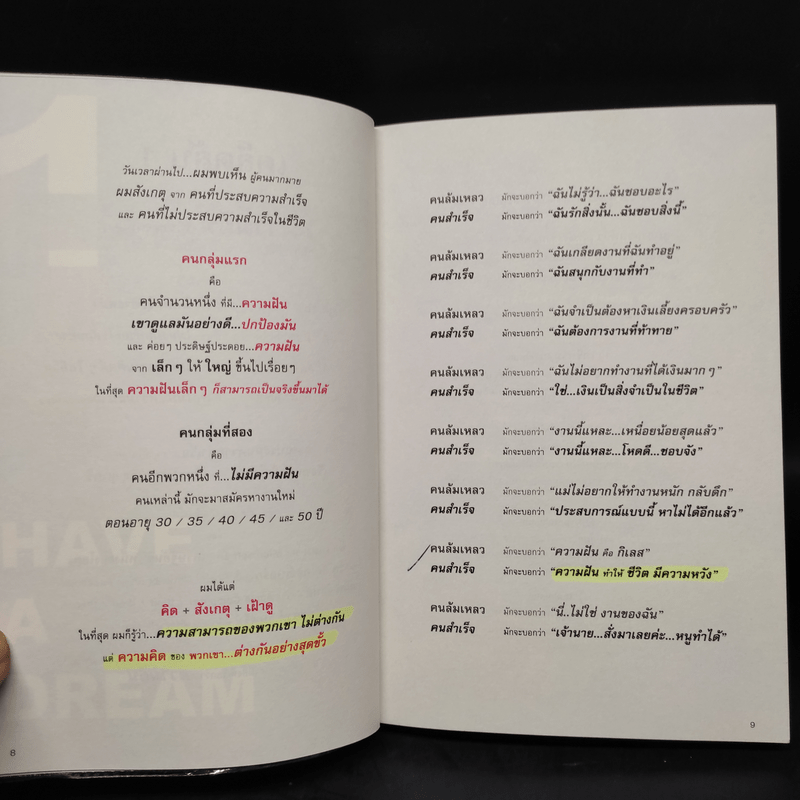 วันเวลาผ่านไป...ผมพบเห็น ผู้คนมากมาย
ผมสังเกตุ จาก คนที่ประสบความสำเร็จ
และ คนที่ไม่ประสบความสำเร็จในชีวิต
คนกลุ่มแรก
คือ
คนจำนวนหนึ่ง ที่มี...ความฝัน
เขาดูแลมันอย่างดี...ปกป้องมัน
และ ค่อยๆ ประดิษฐ์ประดอย...ความฝัน
จาก เล็กๆ ให้ ใหญ่ ขึ้นไปเรื่อยๆ
ในที่สุด ความฝันเล็กๆ ก็สามารถเป็นจริงขึ้นมาได้
คนกลุ่มที่สอง
คือ
คนอีกพวกหนึ่ง ที่...ไม่มีความฝัน
คนเหล่านี้ มักจะมาสมัครหางานใหม่
ตอนอายุ 30 / 35 / 40 / 45 / และ 50 ปี
ผมได้แต่
คิด + สังเกตุ + เฝ้าดู
ในที่สุด ผมก็รู้ว่า...ความสามารถของพวกเขา ไม่ต่างกัน
แต่ ความคิด ของ พวกเขา...ต่างกันอย่างสุดขั้ว
HAVE
A
DREAM
8
คนล้มเหลว มักจะบอกว่า "ฉันไม่รู้ว่า...ฉันชอบอะไร"
คนสำเร็จ มักจะบอกว่า "ฉันรักสิ่งนั้น...ฉันชอบสิ่งนี้"
คนล้มเหลว มักจะบอกว่า "ฉันเกลียดงานที่ฉันทำอยู่"
คนสำเร็จ มักจะบอกว่า "ฉันสนุกกับงานที่ทำ"
คนล้มเหลว มักจะบอกว่า "ฉันจำเป็นต้องหาเงินเลี้ยงครอบครัว"
คนสำเร็จ มักจะบอกว่า "ฉันต้องการงานที่ท้าทาย"
คนล้มเหลว มักจะบอกว่า "ฉันไม่อยากทำงานที่ได้เงินมากๆ"
คนสำเร็จ มักจะบอกว่า "ใช่...เงินเป็นสิ่งจำเป็นในชีวิต"
คนล้มเหลว มักจะบอกว่า "งานนี้แหละ...เหนื่อยน้อยสุดแล้ว"
คนสำเร็จ มักจะบอกว่า "งานนี้แหละ...โหดดี...ชอบจัง"
คนล้มเหลว มักจะบอกว่า "แม่ไม่อยากให้ทำงานหนัก กลับดึก"
คนสำเร็จ มักจะบอกว่า "ประสบการณ์แบบนี้ หาไม่ได้อีกแล้ว"
คนล้มเหลว มักจะบอกว่า "ความฝัน คือ กิเลส"
คนสำเร็จ มักจะบอกว่า "ความฝัน ทำให้ ชีวิต มีความหวัง"
คนล้มเหลว มักจะบอกว่า "นี่..ไม่ใช่ งานของฉัน"
คนสำเร็จ มักจะบอกว่า "เจ้านาย...สั่งมาเลยค่ะ...หนูทำได้"
9